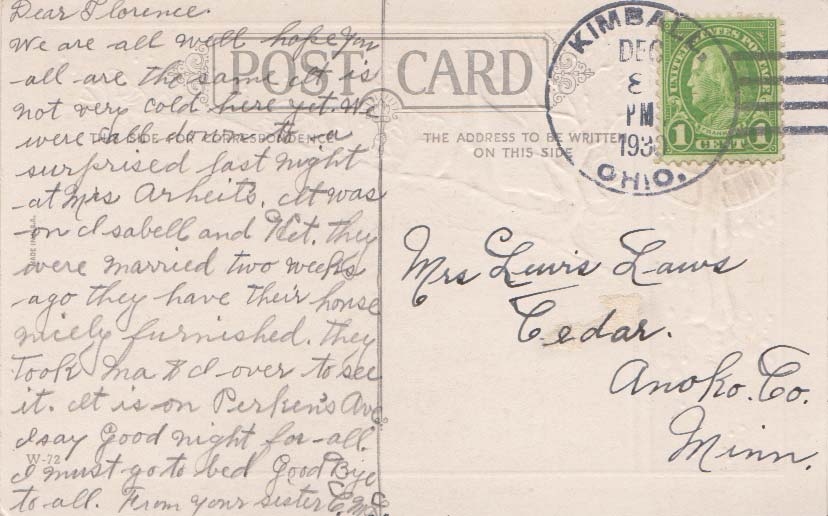 Dear Florence.
We are all well hope you
all are the same it is
not very cold here yet. We
were all down to a
surprised last night
at Mrs Arheits. It was
on Isabell and Net. they
were married two weeks
ago they have their house
nicely furnished. they
Took Ma & I over to see
it. It is on Perken's Ave
I say Good night for all.
I must go to bed Good Bye
to all. From your sister C.M.C.
POST CARD
THIS SIDE FOR CORRESPONDENCE
THE ADDRESS TO BE WRITTEN
ON THIS SIDE
MADE IN U.S.A.
W-72
KIMBAL
DEC
8
PM
193
OHIO.
UNITED STATES POSTAGE
FRANKLIN
1 CENT 1
Mrs Lewis Laws
Cedar.
Anoko. Co.
Minn.